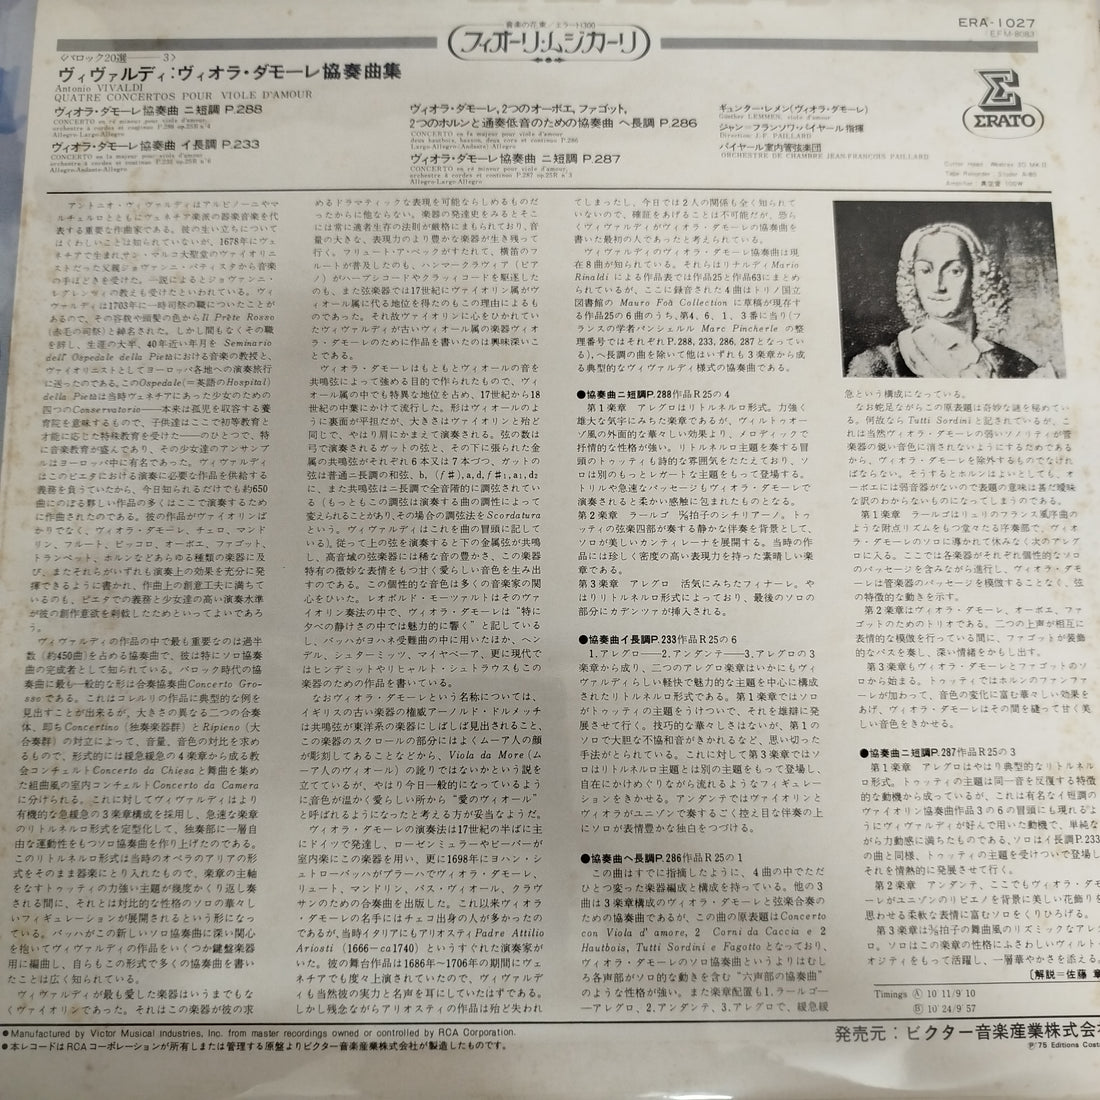 音楽の花束／エラート1300
フィオーリ・ムジカーリ
ERA-1027
EFM-8083
〈バロック20選——3〉
ヴィヴァルディ：ヴィオラ・ダモーレ協奏曲集
Antonio VIVALDI
QUATRE CONCERTOS POUR VIOLE D'AMOUR
ヴィオラ・ダモーレ協奏曲 ニ短調 P.288
CONCERTO en ré mineur pour viole d'amour,
orchestre à cordes et continuo P.288 op.25R n°4
Allegro-Largo-Allegro
ヴィオラ・ダモーレ協奏曲 イ長調 P.233
CONCERTO en la majeur pour viole d'amour
orchestre à cordes et continuo P.233 op.25R n°6
Allegro-Andante-Allegro
ヴィオラ・ダモーレ，2つのオーボエ，ファゴット，
2つのホルンと通奏低音のための協奏曲 ヘ長調 P.286
CONCERTO en fa majeur pour viole d'amour,
deux hautbois, basson, deux cors et continuo P.286
Largo-Allegro(Andante)-Allegro
ヴィオラ・ダモーレ協奏曲 ニ短調 P.287
CONCERTO en ré mineur pour viole d'amour,
orchestre à cordes et continuo P.287 op.25R n°3
Allegro-Largo-Allegro
ギュンター・レメン（ヴィオラ・ダモーレ）
Günther LEMMEN, viole d'amour
ジャン＝フランソワ・パイヤール指揮
Direction: J.F. PAILLARD
パイヤール室内管弦楽団
ORCHESTRE DE CHAMBRE JEAN-FRANÇOIS PAILLARD
ERATO
アントニオ・ヴィヴァルディはアルビノーニやマ
ルチェルロとともにヴェネチア楽派の器楽音楽を代
表する重要な作曲家である。彼の生い立ちについて
はくわしいことは知られていないが、1678年にヴェ
ネチアで生まれサン・マルコ大聖堂のヴァイオリニ
ストだった父親ジョヴァンニ・バティスタから音楽
の手ほどきを受けた。一説によるとジョヴァンニ・
レグレンツィの教えも受けたといわれている。ヴィ
ヴァルディは1703年に一時司祭の職についたことが
あるので、その容貌や頭髪の色からIl Prête Rosso
(赤毛の司祭)と綽名された。しかし間もなくその職
を辞し、生涯の大半、40年近い年月を Seminario
dell' Ospedale della Pietaにおける音楽の教授と、
ヴァイオリニストとしてヨーロッパ各地への演奏旅行
に送ったのである。このOspedale(＝英語のHospital)
della Pietaは当時ヴェネチアにあった少女のための
四つのConservatorio——本来は孤児を収容する養
育院を意味するもので、子供達はここで初等教育と
才能に応じた特殊教育を受けた——のひとつで、特
に音楽教育が盛んであり、その少女達のアンサンブ
ルはヨーロッパ中に有名であった。ヴィヴァルディ
はこのピエタにおける演奏に必要な作品を供給する
義務を負っていたから、今日知られるだけでも約650
曲にのぼる夥しい作品の多くはここで演奏するため
に作曲されたのである。彼の作品がヴァイオリンば
かりでなく、ヴィオラ・ダモーレ、チェロ、マンド
リン、フルート、ピッコロ、オーボエ、ファゴット、
トランペット、ホルンなどあらゆる種類の楽器に及
び、またそれらがいずれも演奏上の効果を充分に発
揮できるように書かれ、作曲上の創意工夫に満ちて
いるのも、ピエタでの義務と少女達の高い演奏水準
が彼の創作意欲を刺戟したためといってよいであろ
う。
ヴィヴァルディの作品の中で最も重要なのは過半
数(約450曲)を占める協奏曲で、彼は特にソロ協奏
曲の完成者として知られている。バロック時代の協
奏曲に最も一般的な形は合奏協奏曲Concerto Gro-
ssoである。これはコレルリの作品に典型的な例を
見出すことが出来るが、大きさの異なる二つの合奏
体、即ちConcertino（独奏楽器群）とRipieno（大
合奏群）の対立によって、音量、音色の対比を求め
るもので、形式的には緩急緩急の4楽章から成る教
会コンチェルトConcerto da Chiesaと舞曲を集め
た組曲風の室内コンチェルトConcerto da Camera
に分けられる。これに対してヴィヴァルディはより
有機的な急緩急の3楽章構成を採用し、急速な楽章
のリトルネルロ形式を定型化して、独奏部に一層自
由な運動性をもつソロ協奏曲を作り上げたのである。
このリトルネルロ形式は当時のオペラのアリアの形
式をそのまま器楽にとり入れたもので、楽章の主軸
をなすトゥッティの力強い主題が幾度かくり返し奏
される間に、それとは対比的な性格のソロの華々し
いフィギュレーションが展開されるという形になっ
ている。バッハがこの新しいソロ協奏曲に深い関心
を抱いてヴィヴァルディの作品をいくつか鍵盤楽器
用に編曲し、自らもこの形式で多くの協奏曲を書い
たことは広く知られている。
ヴィヴァルディが最も愛した楽器はいうまでもな
くヴァイオリンであった。それはこの楽器が彼の求
めるドラマティックな表現を可能ならしめるものだ
ったからに他ならない。楽器の発達史をみるとそこ
には常に適者生存の法則が厳格にまもられており、音
量の大きな、表現力のより豊かな楽器が生き残って
行く。フリュート・ア・ベックがすたれて、横笛のフ
ルートが普及したのも、ハンマークラヴィア（ピア
ノ）がハープシコードやクラヴィコードを駆逐した
のも、また弦楽器では17世紀にヴァイオリン属がヴ
ィオール属に代る地位を得たのもこの理由によるも
のであった。それ故ヴァイオリンに心をひかれてい
たヴィヴァルディが古いヴィオール属の楽器ヴィオ
ラ・ダモーレのために作品を書いたのは興味深いこ
とである。
ヴィオラ・ダモーレはもともとヴィオールの音を
共鳴弦によって強める目的で作られたもので、ヴィ
オール属の中でも特異な地位を占め、17世紀から18
世紀の中葉にかけて流行した。形はヴィオールのよ
うに裏面が平担だが、大きさはヴァイオリンと殆ど
同じで、やはり肩にかまえて演奏される。弦の数は
弓で演奏されるガットの弦と、その下に張られた金
属の共鳴弦がそれぞれ6本又は7本づつ、ガットの
に、また共鳴弦はニ長調で全音階的に調弦されてい
る（もっともこの調弦は演奏する曲の調性によって
変えられることがあり、その場合の調弦法をScordatura
という。ヴィヴァルディはこれを曲の冒頭に記して
いる)。従って上の弦を演奏すると下の金属弦が共鳴
し、高音域の弦楽器には稀な音の豊かさ、この楽器
特有の微妙な表情をもつ甘く愛らしい音色を生み出
すのである。この個性的な音色は多くの音楽家の関
心をひいた。レオポルド・モーツァルトはそのヴァ
イオリン奏法の中で、ヴィオラ・ダモーレは“特に
夕べの静けさの中では魅力的に響く”と記している
し、バッハがヨハネ受難曲の中に用いたほか、ヘン
デル、シュターミッツ、マイヤベーア、更に現代で
はヒンデミットやリヒャルト・シュトラウスもこの
楽器のための作品を書いている。
なおヴィオラ・ダモーレという名称については、
イギリスの古い楽器の権威アーノルド・ドルメッチ
は共鳴弦が東洋系の楽器にしばしば見出されること、
この楽器のスクロールの部分にはよくムーア人の顔
が彫刻してあることなどから、Viola da More（ム
ーア人のヴィオール）の訛りではないかという説を
立てているが、やはり今日一般的になっているよう
に音色が温かく愛らしい所から“愛のヴィオール”
と呼ばれるようになったと考える方が妥当なようだ。
ヴィオラ・ダモーレの演奏法は17世紀の半ばに主
にドイツで発達し、ローゼンミュラーやビーバーが
室内楽にこの楽器を用い、更に1698年にヨハン・シ
ュトローバッハがプラーハでヴィオラ・ダモーレ、
リュート、マンドリン、バス・ヴィオール、クラヴ
サンのための合奏曲を出版した。これ以来ヴィオラ
・ダモーレの名手にはチェコ出身の人が多かったの
であるが、当時イタリアにもアリオスティPadre Attilio
Ariosti（1666−ca1740）というすぐれた演奏家が
いた。彼の舞台作品は1686年〜1706年の期間にヴェ
ネチアでも度々上演されていたので、ヴィヴァルデ
ィも当然彼の実力と名声を耳にしていたはずである。
しかし残念ながらアリオスティの作品は殆ど失われ
てしまったし、今日では2人の関係も全く知られて
いないので、確証をあげることは不可能だが、恐ら
くヴィヴァルディがヴィオラ・ダモーレの協奏曲を
書いた最初の人であったと考えられている。
ヴィヴァルディのヴィオラ・ダモーレ協奏曲は現
在8曲が知られている。それらはリナルディMario
Rinaldi による作品表では作品25と作品63にまとめ
られているが、ここに録音された4曲はトリノ国立
図書館の Mauro Foà Collection に草稿が現存す
る作品25の6曲のうち、第4、6、1、3番に当り（フ
ランスの学者パンシェルル Marc Pincherle の整
理番号ではそれぞれP.288, 233, 286, 287となってい
る）、ヘ長調の曲を除いて他はいずれも3楽章から成
る典型的なヴィヴァルディ様式の協奏曲である。
●協奏曲ニ短調P.288作品R25の4
第1楽章 アレグロはリトルネルロ形式。力強く
雄大な気宇にみちた楽章であるが、ヴィルトゥオー
ゾ風の外面的な華々しい効果より、メロディックで
抒情的な性格が強い。リトルネルロ主題を奏する冒
頭のトゥッティも詩的な雰囲気をたたえており、ソ
ロは別のもっとレガートな主題をもって登場する。
トリルや急速なパッセージもヴィオラ・ダモーレで
演奏されると柔かい感触に包まれたものとなる。
第2楽章 ラールゴ 12/8拍子のシチリアーノ。トゥ
ッティの弦楽四部が奏する静かな伴奏を背景として、
ソロが美しいカンティレーナを展開する。当時の作
品には珍しく密度の高い表現力を持った素晴しい楽
章である。
第3楽章 アレグロ 活気にみちたフィナーレ。や
はりリトルネルロ形式によっており、最後のソロの
部分にカデンツァが挿入される。
●協奏曲イ長調P.233作品R25の6
1.アレグロ——2.アンダンテ——3.アレグロの3
楽章から成り、二つのアレグロ楽章はいかにもヴィ
ヴァルディらしい軽快で魅力的な主題を中心に構成
されたリトルネルロ形式である。第1楽章ではソロ
がトゥッティの主題をうけついで、それを雄辯に発
展させて行く。技巧的な華々しさはないが、第1の
ソロで大胆な不協和音がきかれるなど、思い切った
手法がとられている。これに対して第3楽章ではソ
ロはリトルネルロ主題とは別の主題をもって登場し、
自在にかけめぐりながら流れるようなフィギュレー
ションをきかせる。アンダンテではヴァイオリンと
ヴィオラがユニゾンで奏するごく控え目な伴奏の上
にソロが表情豊かな独白をつづける。
●協奏曲ヘ長調P.286作品R25の1
この曲はすでに指摘したように、4曲の中でただ
ひとつ変った楽器編成と構成を持っている。他の3
曲は3楽章構成のヴィオラ・ダモーレと弦楽合奏の
ための協奏曲であるが、この曲の原表題はConcerto
con Viola d' amore, 2 Corni da Caccia e 2
Hautbois, Tutti Sordini e Fagottoとなっており、
ヴィオラ・ダモーレのソロ協奏曲というよりはむし
ろ各声部がソロ的な動きを含む“六声部の協奏曲”
のような性格が強い。また楽章配置も1.ラールゴ—
—アレグロ、2.アンダンテ、3.アレグロで、緩急緩
急という構成になっている。
なお蛇足ながらこの原表題は奇妙な謎を秘めてい
る。例故なら Tutti Sordini と記されているが、こ
れは当然ヴィオラ・ダモーレの弱いソノリティが管
楽器の鋭い音色に消されないようにするためである
から、ヴィオラ・ダモーレを除外するものでなけれ
ばならない。そうするとホルンはよいとしても、オ
ーボエには弱音器がないので表題の意味は甚だ曖昧
な訳のわからないものになってしまうのである。
第1楽章 ラールゴはリュリのフランス風序曲の
ような附点リズムをもつ堂々たる序奏部で、ヴィオ
ラ・ダモーレのソロに導かれて休みなく次のアレグ
ロに入る。ここでは各楽器がそれぞれ個性的なソロ
のパッセージを含みながら進行し、ヴィオラ・ダモ
ーレは管楽器のパッセージを模倣することなく、弦
の特徴的な動きを示す。
第2楽章はヴィオラ・ダモーレ、オーボエ、ファ
ゴットのためのトリオである。二つの上声が相互に
表情的な模倣を行っている間に、ファゴットが装飾
的なバスを奏し、深い情緒をかもし出す。
第3楽章もヴィオラ・ダモーレとファゴットのソ
ロから始まる。トゥッティではホルンのファンファ
ーレが加わって、音色の変化に富む華々しい効果を
あげ、ヴィオラ・ダモーレはその間を縫って甘く美
しい音色をきかせる。
●協奏曲ニ短調P.287作品R25の3
第1楽章 アレグロはやはり典型的なリトルネル
ロ形式。トゥッティの主題は同一音を反復する特徴
的な動機から成っているが、これは有名なイ短調の
ヴァイオリン協奏曲作品3の6の冒頭にも現れるよ
うにヴィヴァルディが好んで用いた動機で、単純な
がら力動感に満ちたものである。ソロはイ長調P.233
の曲と同様、トゥッティの主題を受けついで登場し
それを情熱的に発展させて行く。
第2楽章 アンダンテ、ここでもヴィオラ・ダモ
ーレがユニゾンのリピエノを背景に美しい花飾りを
思わせる柔軟な表情に富むソロをくりひろげる。
第3楽章は3/8拍子の舞曲風のリズミックなアレグ
ロ。ソロはこの楽章の性格にふさわしいヴィルト
オジティをもって活躍し、一層華やかさを添える。
〔解説＝佐藤 章
Timings Ⓐ 10´11/9´10
Ⓑ 10´24/9´57
●Manufactured by Victor Musical Industries, Inc. from master recordings owned or controlled by RCA Corporation.
●本レコードはRCAコーポレーションが所有しまたは管理する原盤よりビクター音楽産業株式会社が製造したものです。
発売元：ビクター音楽産業株式会
Ⓟ'75 Editions Cost